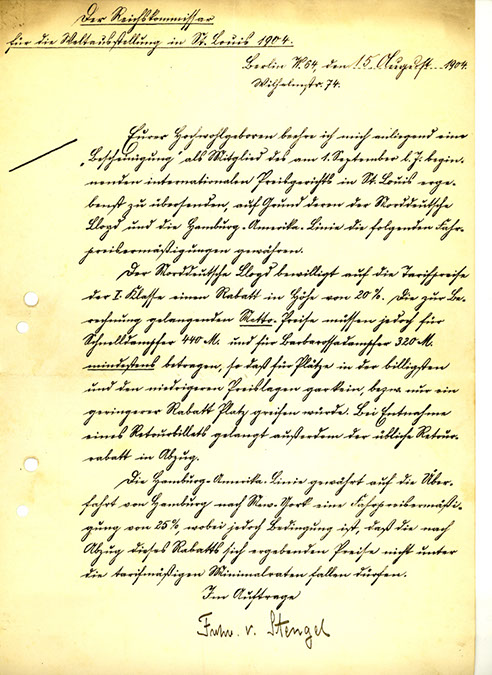 Der Reichskommissar
für die Weltausstellung in St. Louis 1904.
Berlin W. 64, den 15 August 1904.
Wilhelmstr. 74.
Eurer Hochwohlgeboren beehre ich mich anliegend eine
„Bescheinigung“ als Mitglied des am 1. September l. J. begin-
nenden internationalen Preisgerichts in St. Louis erge-
benst zu übersenden, auf Grund deren der Norddeutsche
Lloyd und die Hamburg-Amerika-Linie die folgenden Fahr-
preisermäßigungen gewähren.
Der Norddeutsche Lloyd bewilligt auf die Tarifpreise
der I. Klasse einen Rabatt in Höhe von 20%. Die zur Be-
rechnung gelangenden Netto-Preise müssen jedoch für
Schnelldampfer 440 M. und für Barbarossadampfer 320 M.
mindestens betragen, so daß für Plätze in der billigsten
und den niedrigeren Preislagen gar kein, bezw. nur ein
geringerer Rabatt Platz greifen würde. Bei Entnahme
eines Retourbillets gelangt außerdem der übliche Retour-
rabatt in Abzug.
Die Hamburg-Amerika-Linie gewährt auf die Über-
fahrt von Hamburg nach New-York eine Fahrpreisermäßi-
gung von 25%, wobei jedoch Bedingung ist, daß die nach
Abzug dieses Rabatts sich ergebenden Preise nicht unter
die tarifmäßigen Minimalraten fallen dürfen.
Im Auftrage
Frhr. v. Stengel